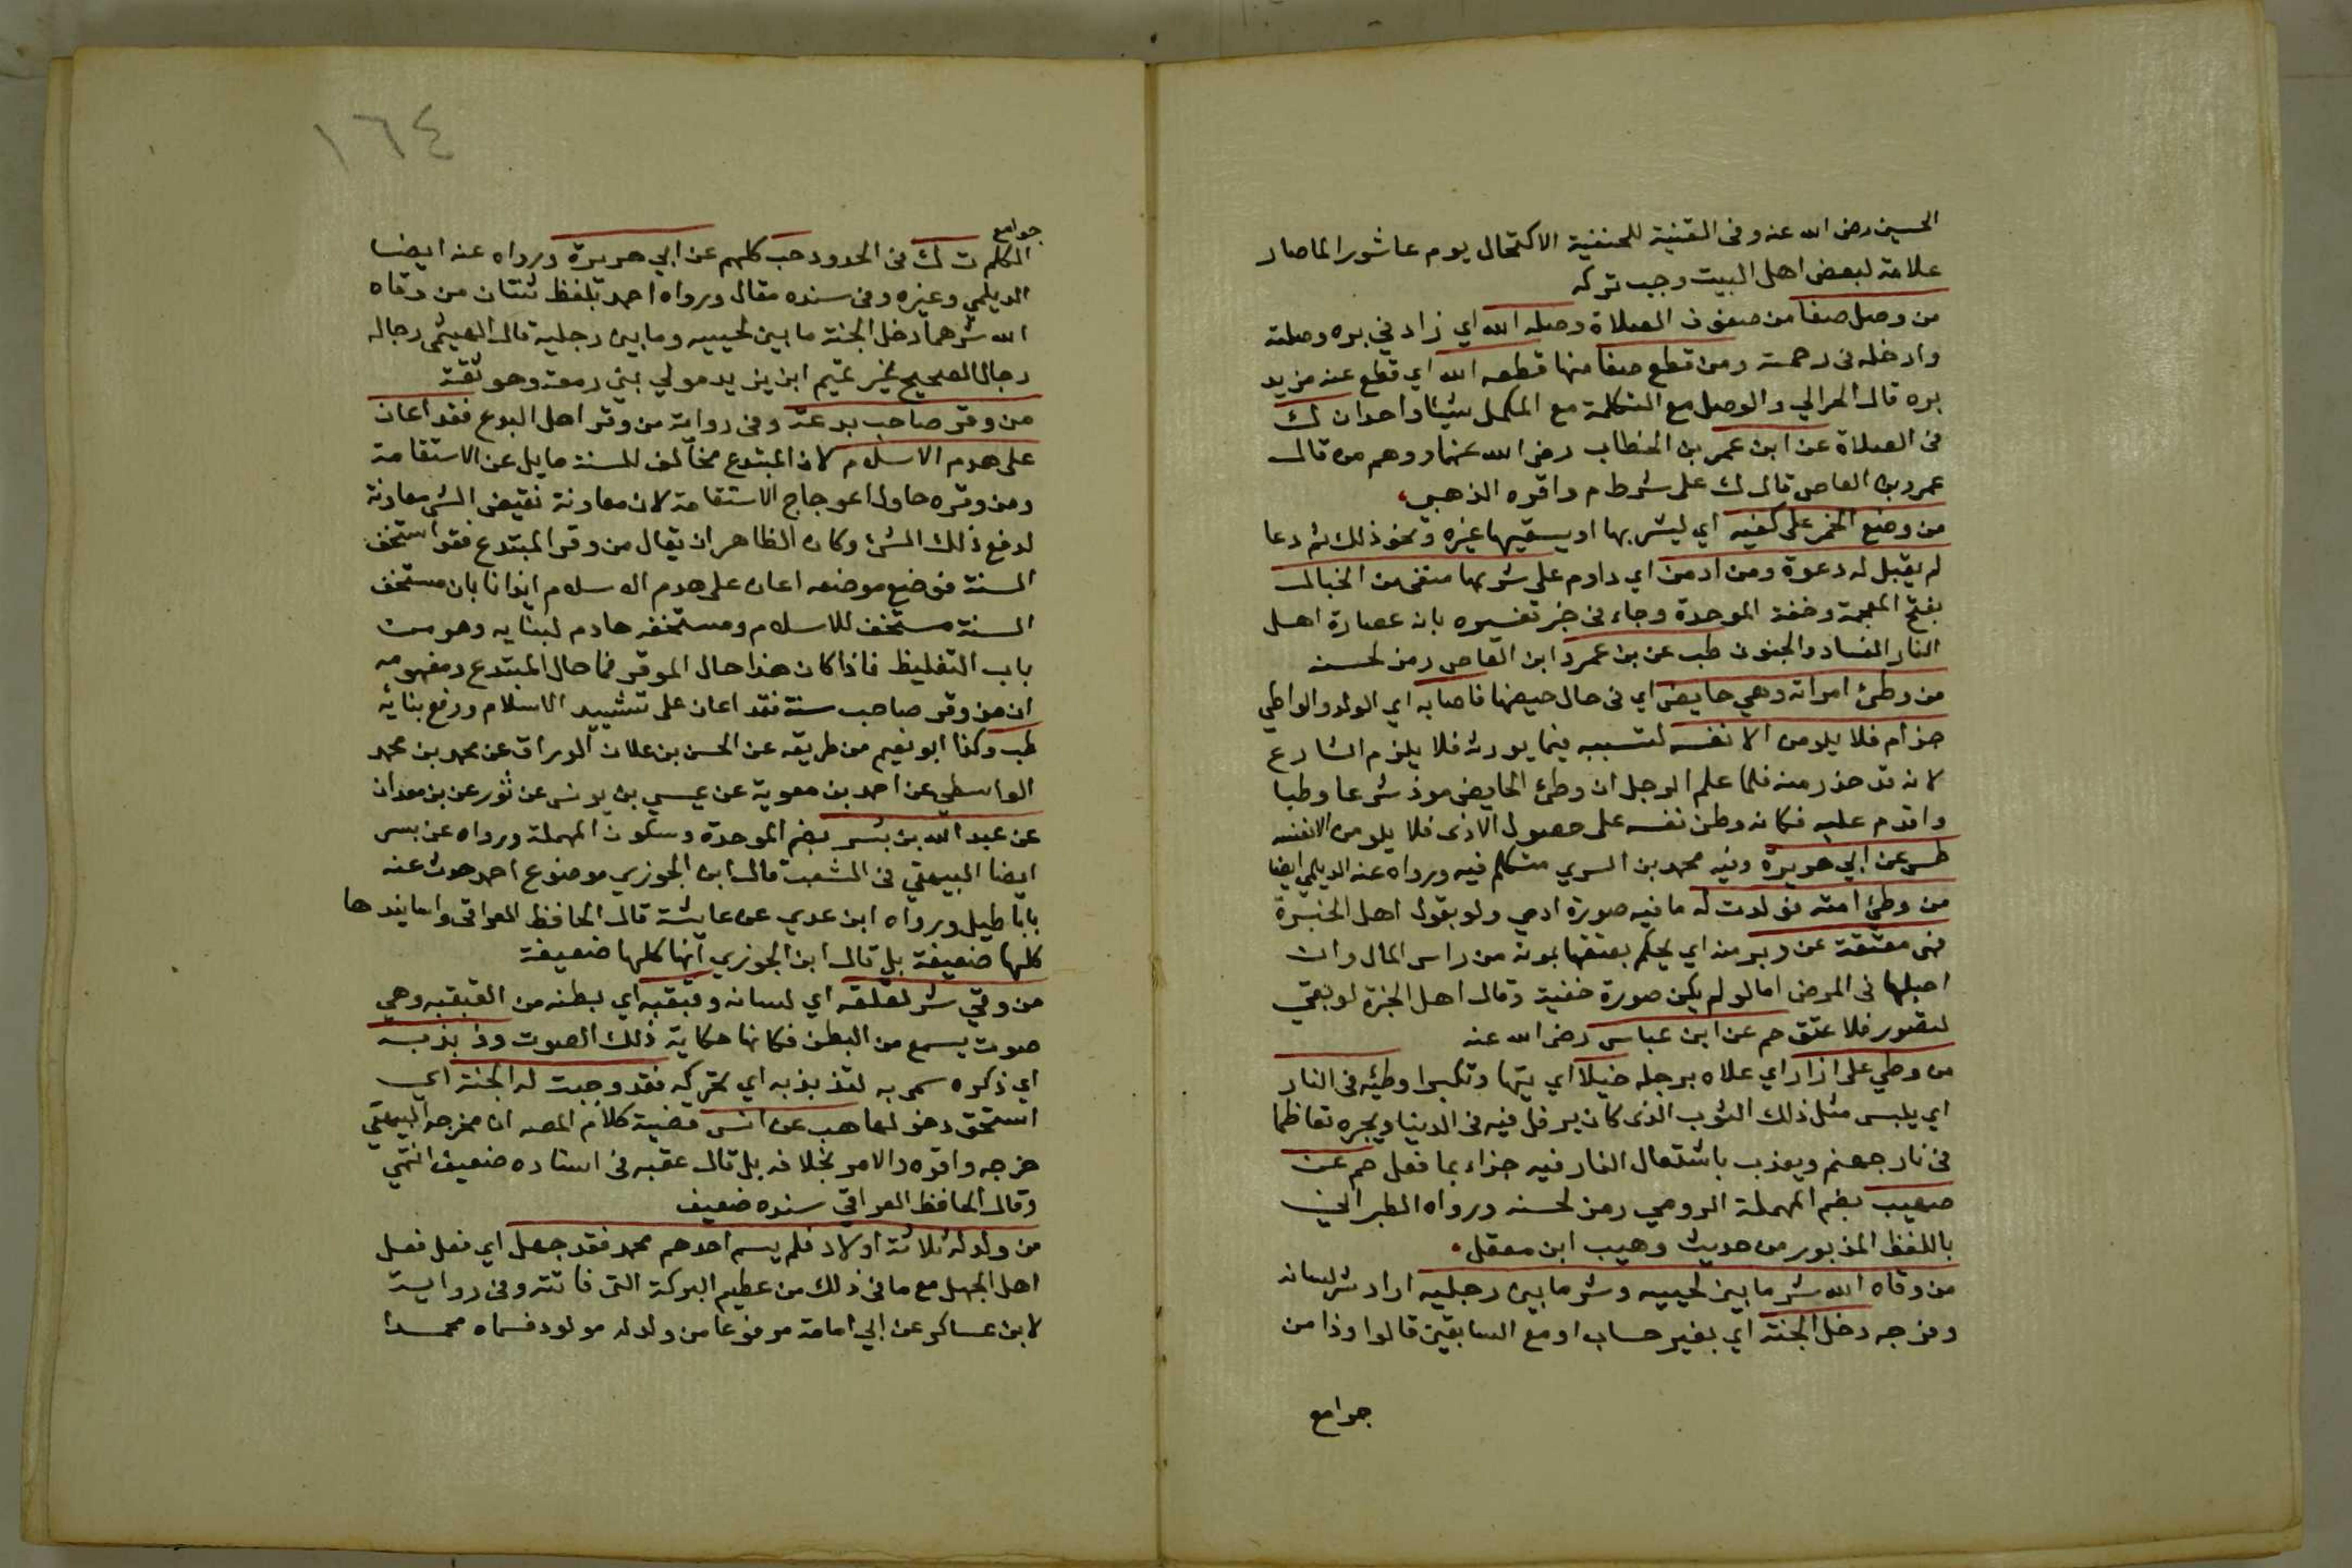 الحسين رضى الله عنه وفى القنية للحنفية الاكتحال يوم عاشورا لما صار
علامة لبعض اهل البيت وجب تركه
من وصل صفا من صفوف الصلاة وصله الله اي زاد في بره وصلته
وادخله فى رحمته ومن قطع صفا منها قطعه الله اي قطع عنه مزيد
بره قال الحرالي والوصل مع التكلمة مع المكمل شيئا واحدا ن ك
فى الصلاة عن ابن عمر بن الخطاب رضى الله عنهما ووهم من قال
عمرو بن العاص قال ك على شرط م واقره الذهبي
من وضع الخمر على كفيه اي ليشربها او يسقيها غيره ونحو ذلك ثم دعا
لم يقبل له دعوة ومن ادمن اي داوم على شربها سقى من الخبال
بفتح المعجمة وخفة الموحدة وجاء فى خبر تفسيره بانه عصارة اهل
النار الفساد والجنون طب عن بن عمرو ابن العاص رمز لحسنه
من وطئ امراته وهي حايض اي فى حال حيضها فاصابه اي الولد والواطي
جزام فلا يلومن الا نفسه لتسببه فيما يورثه فلا يلوم الشارع
لانه قد حذر منه فلما علم الرجل ان وطئ الحايض موذ شرعا وطبا
واقدم عليه فكانه وطن نفسه على حصول الاذى فلا يلومن الا نفسه
طس عن ابي هريرة وفيه محمد بن السري متكلم فيه ورواه عنه الديلمي ايضا
من وطئ امته فولدت له ما فيه صورة ادمي ولو بقول اهل الخبرة
فهى معتقة عن دبر منه اي يحكم بعتقها بموته من راس المال وان
احبلها فى المرض اما لو لم يكن صورة خفية وقال اهل الخبرة لو بقي
لتصور فلا عتق حم عن ابن عباس رضى الله عنه
من وطي على ازار اي علاه برجله خيلا اي تيها وتكبرا وطئه فى النار
اي يلبس مثل ذلك الثوب الذى كان يرفل فيه فى الدينا ويجره تعاظما
فى نار جهنم ويعذب باشتعال النار فيه جزاء بما فعل حم عن
صهيب بضم المهملة الرومي رمز لحسنه ورواه الطبراني
باللفظ المذبور من حديث وهيب ابن معقل
من وقاه الله شر ما بين لحييه وشر ما بين رجليه اراد شر لسانه
وفرجه دخل الجنة اي بغير حساب او مع السابقين قالوا وذا من
جوامع
١٦٤
جوامع
الكلم ت ك فى الحدود حب كلهم عن ابي هريرة ورواه عنه ايضا
الديلمي وغيره وفى سنده مقال ورواه احمد بلفظ ثنتان من وقاه
الله شرهما دخل الجنة ما بين لحييه وما بين رجليه قال الهيثمي رجاله
رجال الصحيح غير تميم ابن يزيد مولي بني رمعة وهو ثقة
من وقر صاحب بدعة وفى رواية من وقر اهل البدع فقد اعان
على هدم الاسلام لان المبتدع مخالف للسنة مايل عن الاستقامة
ومن وقره حاول اعوجاج الاستقامة لان معاونة نقيض الشى معاونة
لدفع ذلك الشئ وكان الظاهر ان يقال من وقر المبتدع فقد استخف
السنة فوضع موضعه اعان على هدم الاسلام ايذانا بان مستخف
السنة مستخف للاسلام ومستخفه هادم لبنايه وهو من
باب التغليظ فاذا كان هذا حال الموقر فما حال المبتدع ومفهومه
ان من وقر صاحب سنة فقد اعان على تشييد الاسلام ورفع بنائه
طب وكذا ابو نعيم من طريقه عن الحسن بن علان الوراق عن محمد بن محمد
الواسطي عن احمد بن معوية عن عيسي بن يونس عن ثور عن بن معدان
عن عبد الله بن بسر بضم الموحدة وسكون المهملة ورواه عن بسر
ايضا البيهقي فى الشعب قال ابن الجوزي موضوع احمد حدث عنه
باباطيل ورواه ابن عدي عن عايشة قال الحافظ العراقى واسانيدها
كلها ضعيفة بل قال ابن الجوزي انها كلها ضعيفة
من وقي شر لقلقه اي لسانه وقبقبه اي بطنه من القبقبه وهي
صوت يسمع من البطن فكانها حكاية ذلك الصوت وذبذبه
اي ذكره سمي به لتذبذبه اي تحركه فقد وجبت له الجنة اي
استحق دخولها هب عن انس قضية كلام المصه ان مخرجه البيهقي
خرجه واقره والامر بخلافه بل قال عقبه فى اسناده ضعيف انتهي
وقال الحافظ العراقي سنده ضعيف
من ولد له ثلاثة اولاد فلم يسم احدهم محمد فقد جهل اي فعل فعل
اهل الجهل مع ما فى ذلك من عظيم البركة التى فاتته وفى رواية
لابن عساكر عن ابي امامة مرفوعا من ولد له مولود فسماه محمدا